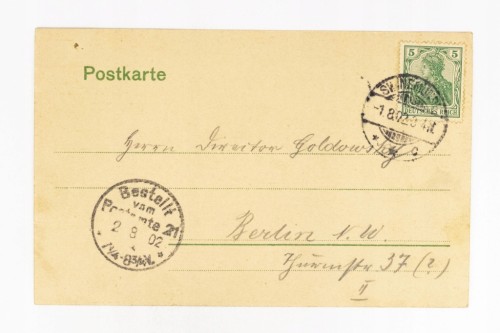 Postkarte
5 5
DEUTSCHES REICH
-1.8.02.
Herrn Director Goldowsky
Bestellt
vom
Postamte 21
2 8 02
Berlin N.W.
Thurmstr 37 (?)
II